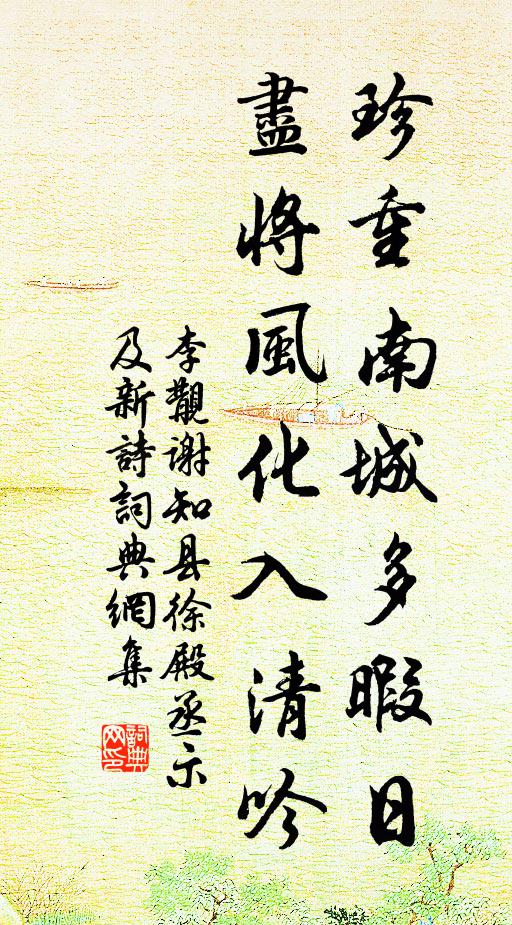 珍重南城多暇日
盡將風化入清吟
李觀谢知县徐殿丞示
及新詩詞典網集
詞典网印